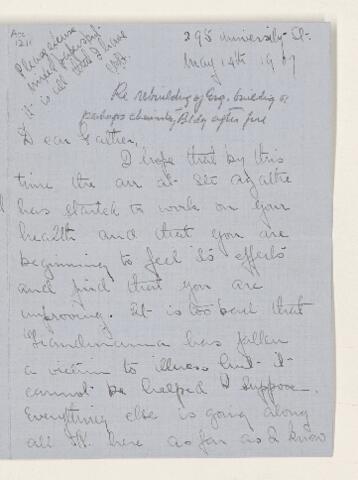 Acc
1211
Please excuse
this paper but
it is all that I have
395 University St.
May 14th 1907
Re rebuilding of Eng. building or
perhaps chemistry Bldg after fire
Dear Father,
I hope that by this
time the air at Ste Agathe
has started to work on your
health and that you are
beginning to feel its effects
and find that you are
improving. It is too bad that
Grandmamma has fallen
a victim to illness but it
cannot be helped I suppose.
Everything else is going along
all right here as far as I know